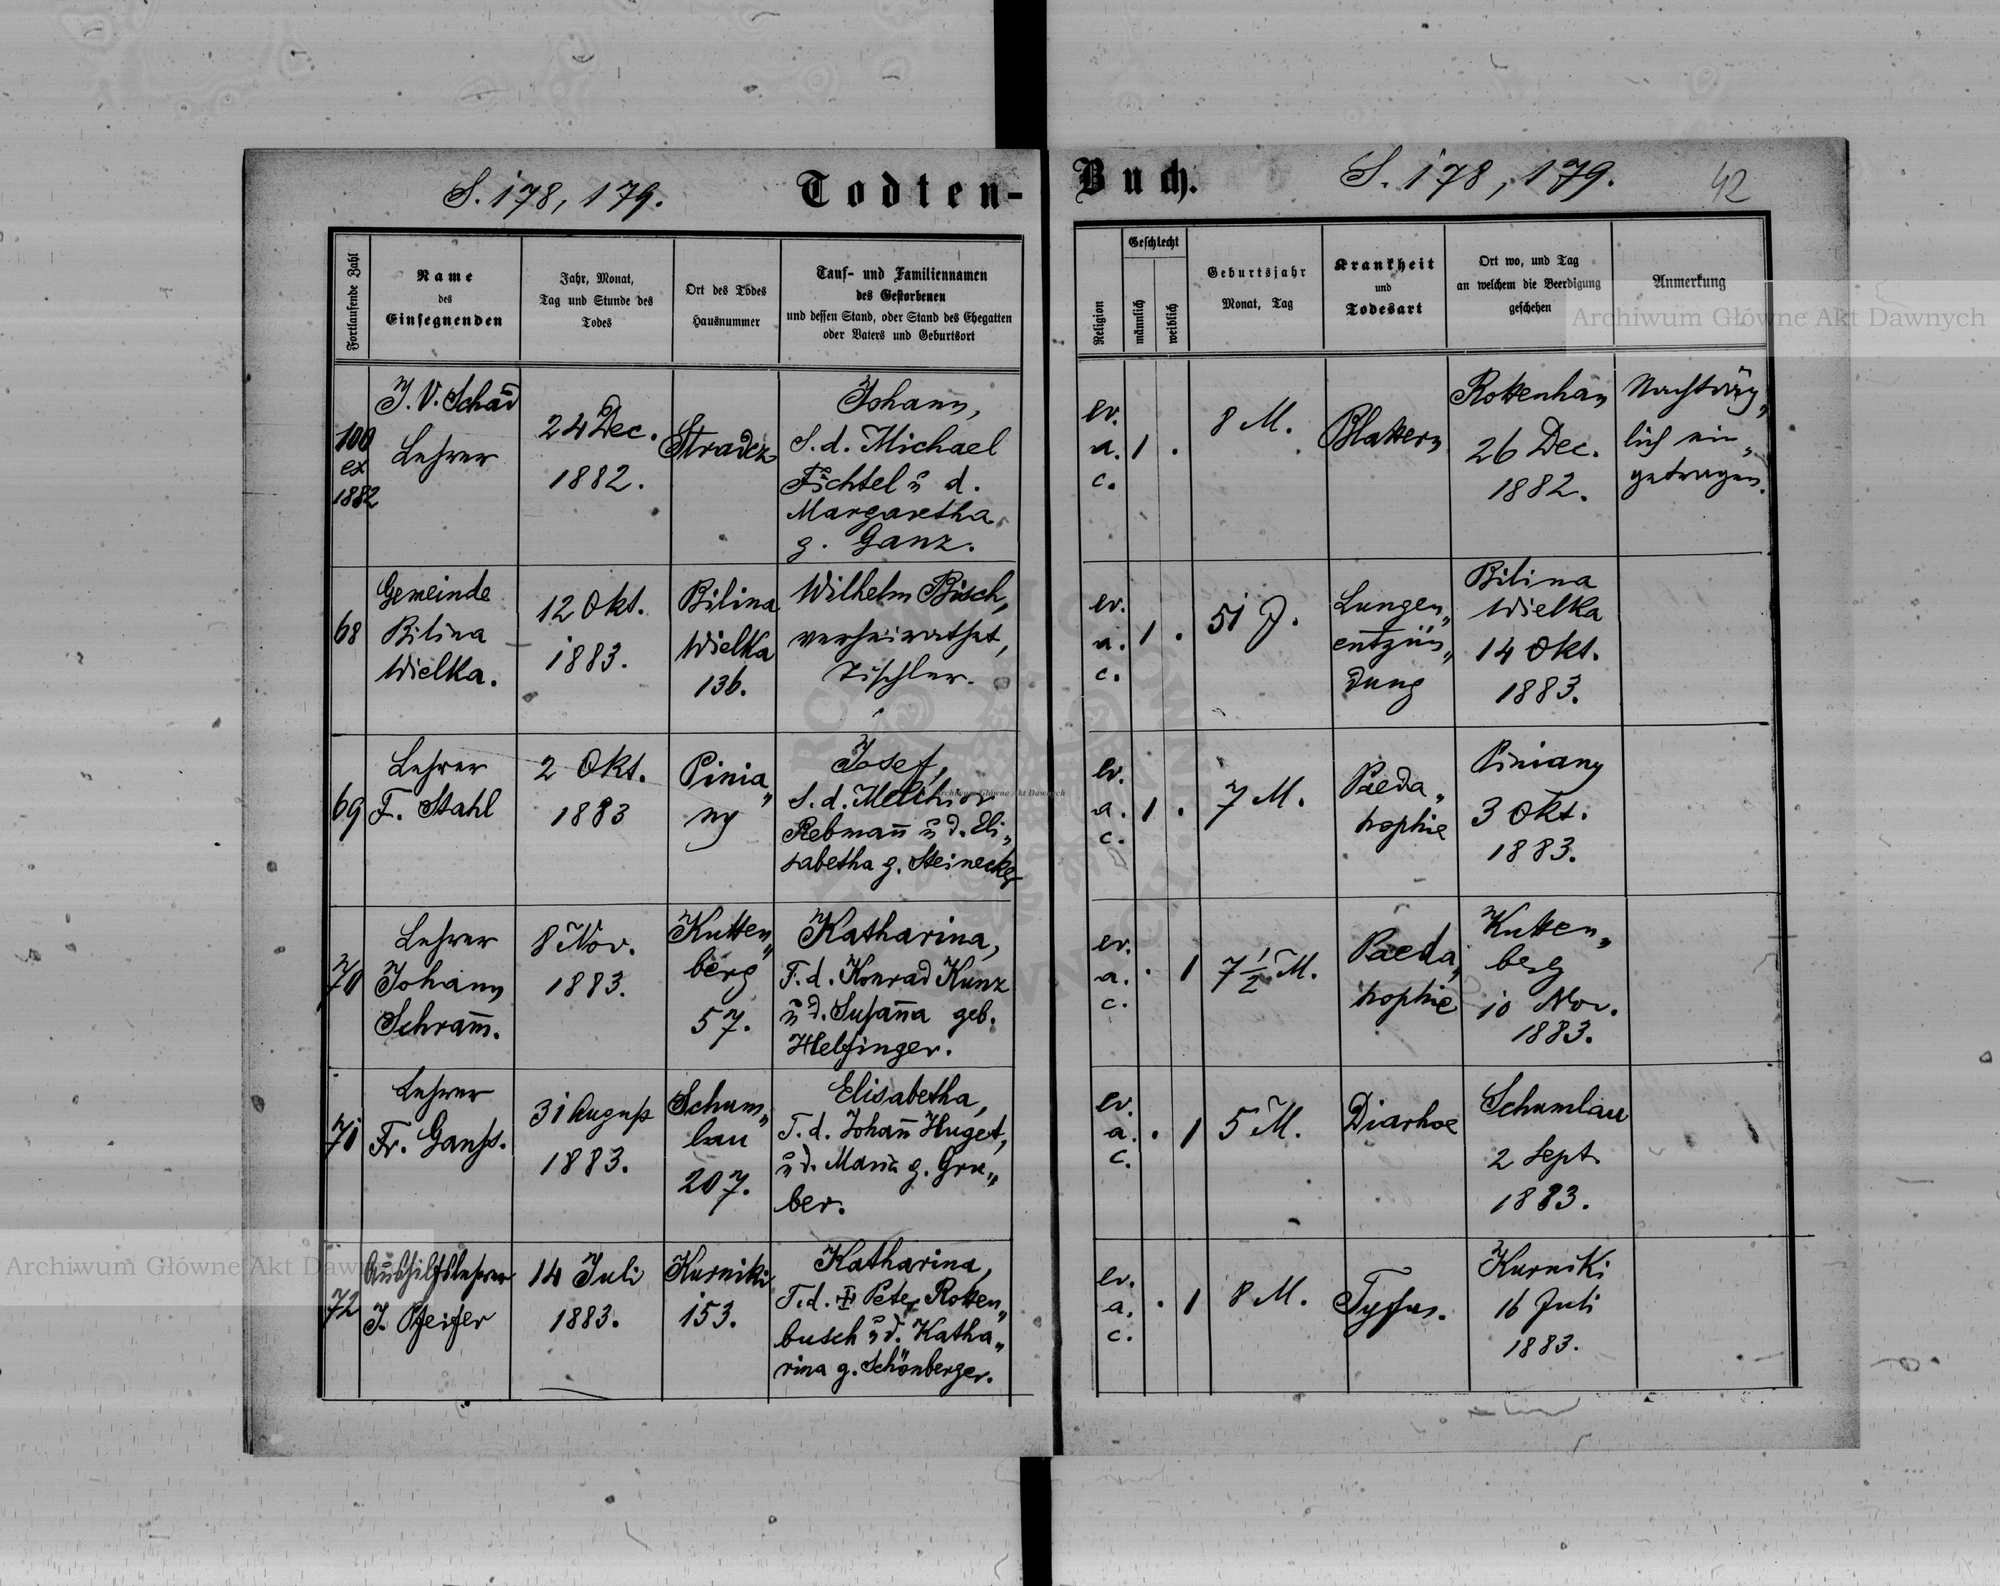 S. 178, 179.
Todten-
Buch.
S. 178, 179.
42
Fortlaufende Zahl
Name
des
Einsegnenden
Jahr, Monat,
Tag und Stunde des
Todes
Ort des Todes
Hausnummer
Tauf- und Familiennamen
des Gestorbenen
und dessen Stand, oder Stand des Ehegatten
oder Vaters und Geburtsort
Religion
Geschlecht
männlich
weiblich
Geburtsjahr
Monat, Tag
Krankheit
und
Todesart
Ort wo, und Tag
an welchem die Beerdigung
geschehen
Anmerkung
Archiwum Główne Akt Dawnych
100
ex
1882
J. V. Schad
Lehrer
24 Dec.
1882.
Stradcz
Johann,
S. d. Michael
Fichtel u d.
Margaretha
g. Ganz.
ev.
a.
c.
1 .
8 M.
Blattern
Rottenhan
26 Dec.
1882.
Nachträg„
lich ein„
getragen.
68
Gemeinde
Bilina
Wielka.
12 Okt.
1883.
Bilina
Wielka
136.
Wilhelm Bisch,
verheirathet,
Tischler.
ev.
a.
c.
1 .
51 J.
Lungen„
entzün„
dung
Bilina
Wielka
14 Okt.
1883.
69
Lehrer
F. Stahl
2 Okt.
1883
Pinia„
ny
Josef,
S. d. Melchior
Rebman̅ u d. Eli„
sabetha g. Steinecker
ev.
a.
c.
1 .
7 M.
Paeda„
trophie
Piniany
3 Okt.
1883.
70
Lehrer
Johann
Schram̅.
8 Nov.
1883.
Kutten„
berg
57.
Katharina,
T. d. Konrad Kunz
u d. Susan̅a geb.
Helfinger.
ev.
a.
c.
. 1
7 1/2 M.
Paeda„
trophie
Kutten„
berg
10 Nov.
1883.
71
Lehrer
Fr. Ganss.
31 August
1883.
Schum„
lau
207.
Elisabetha,
T. d. Johan̅ Huget,
u d. Maria g. Gru„
ber.
ev.
a.
c.
. 1
5 M.
Diarhoe
Schumlau
2 Sept.
1883.
72
Aushilfslehrer
J. Pfeifer
14 Juli
1883.
Kurniki
153.
Katharina,
T. d. ✝ Peter Rotten„
busch u d. Katha„
rina g. Schönberger.
ev.
a.
c.
. 1
8 M.
Tyfus.
Kurniki
16 Juli
1883.
Archiwum Główne Akt Dawnych
Archiwum Główne Akt Dawnych